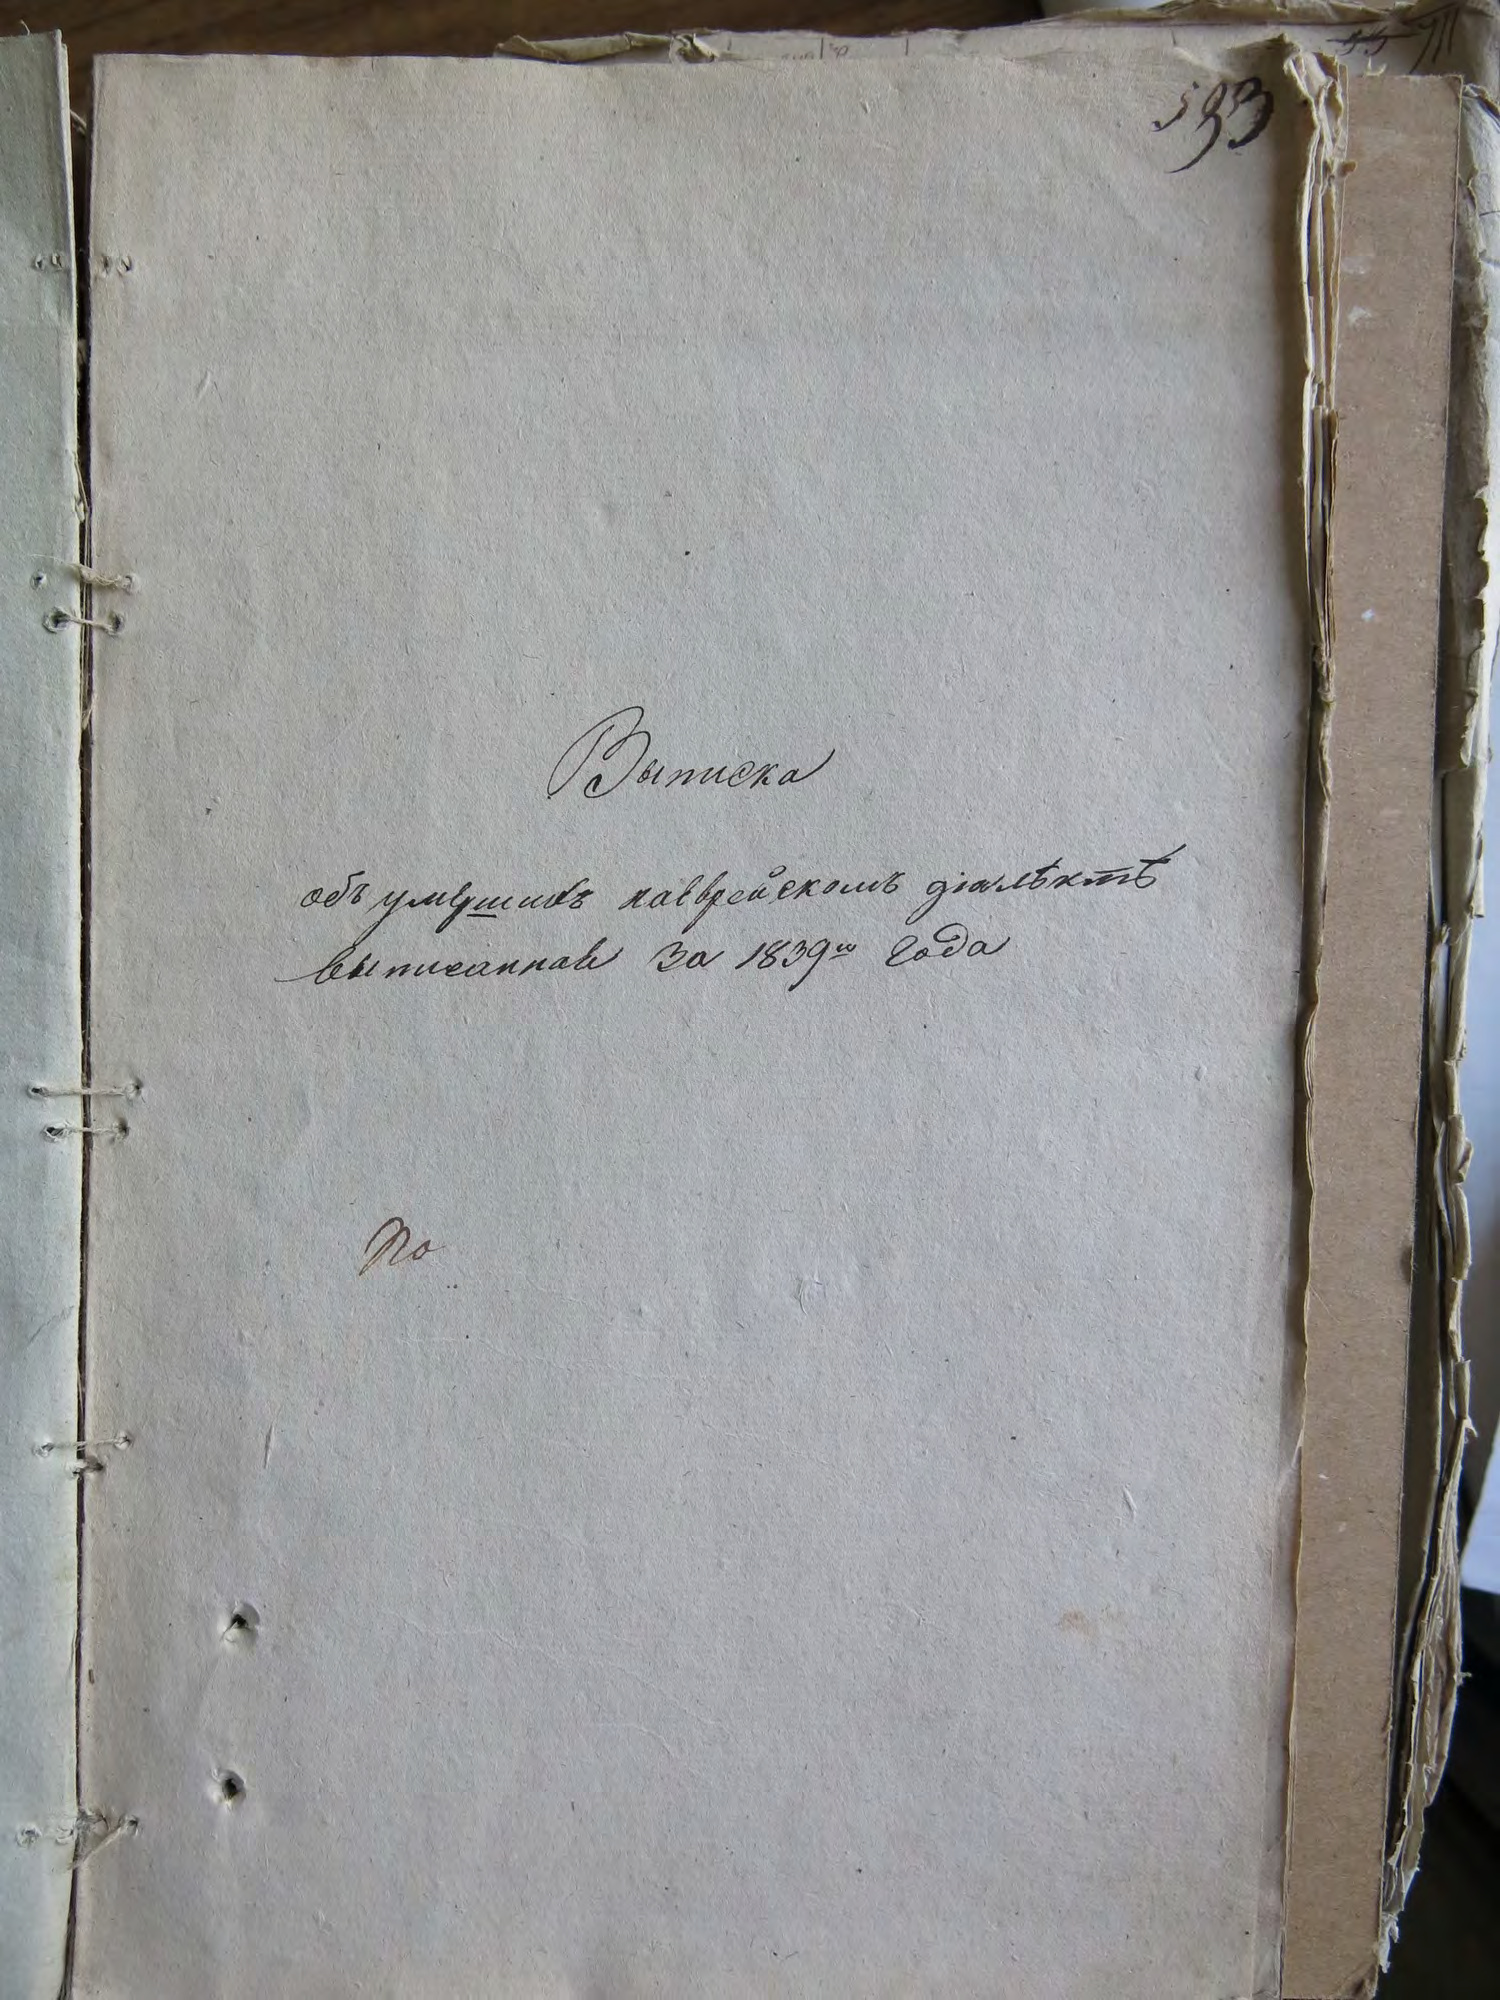 593
Выписка
объ умершихъ наеврейскомъ діалѣктѣ
выписанная за 1839го года
По